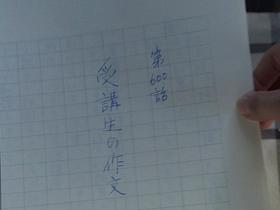 第600話
受講生の作文